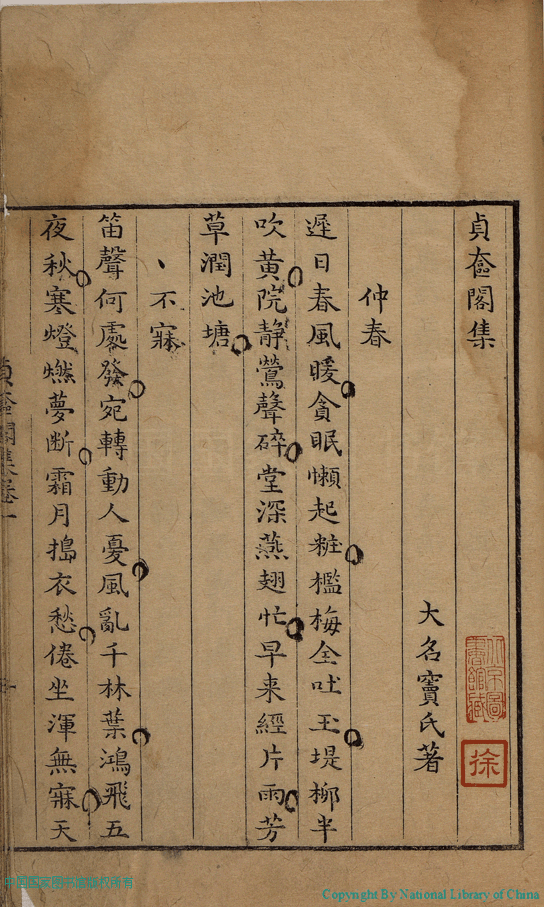 貞奩閣集
大名竇氏著
仲春
遲日春風暖貪眠懶起粧檻梅全吐玉堤柳半
吹黃院静鶯聲碎堂深燕翅忙早来經片雨芳
草潤池塘
不寐
笛聲何處發宛轉動人憂風亂千林葉鴻飛五
夜秋寒燈燃夢断霜月搗衣愁倦坐渾無寐天
徐
Copyright By National Library of China